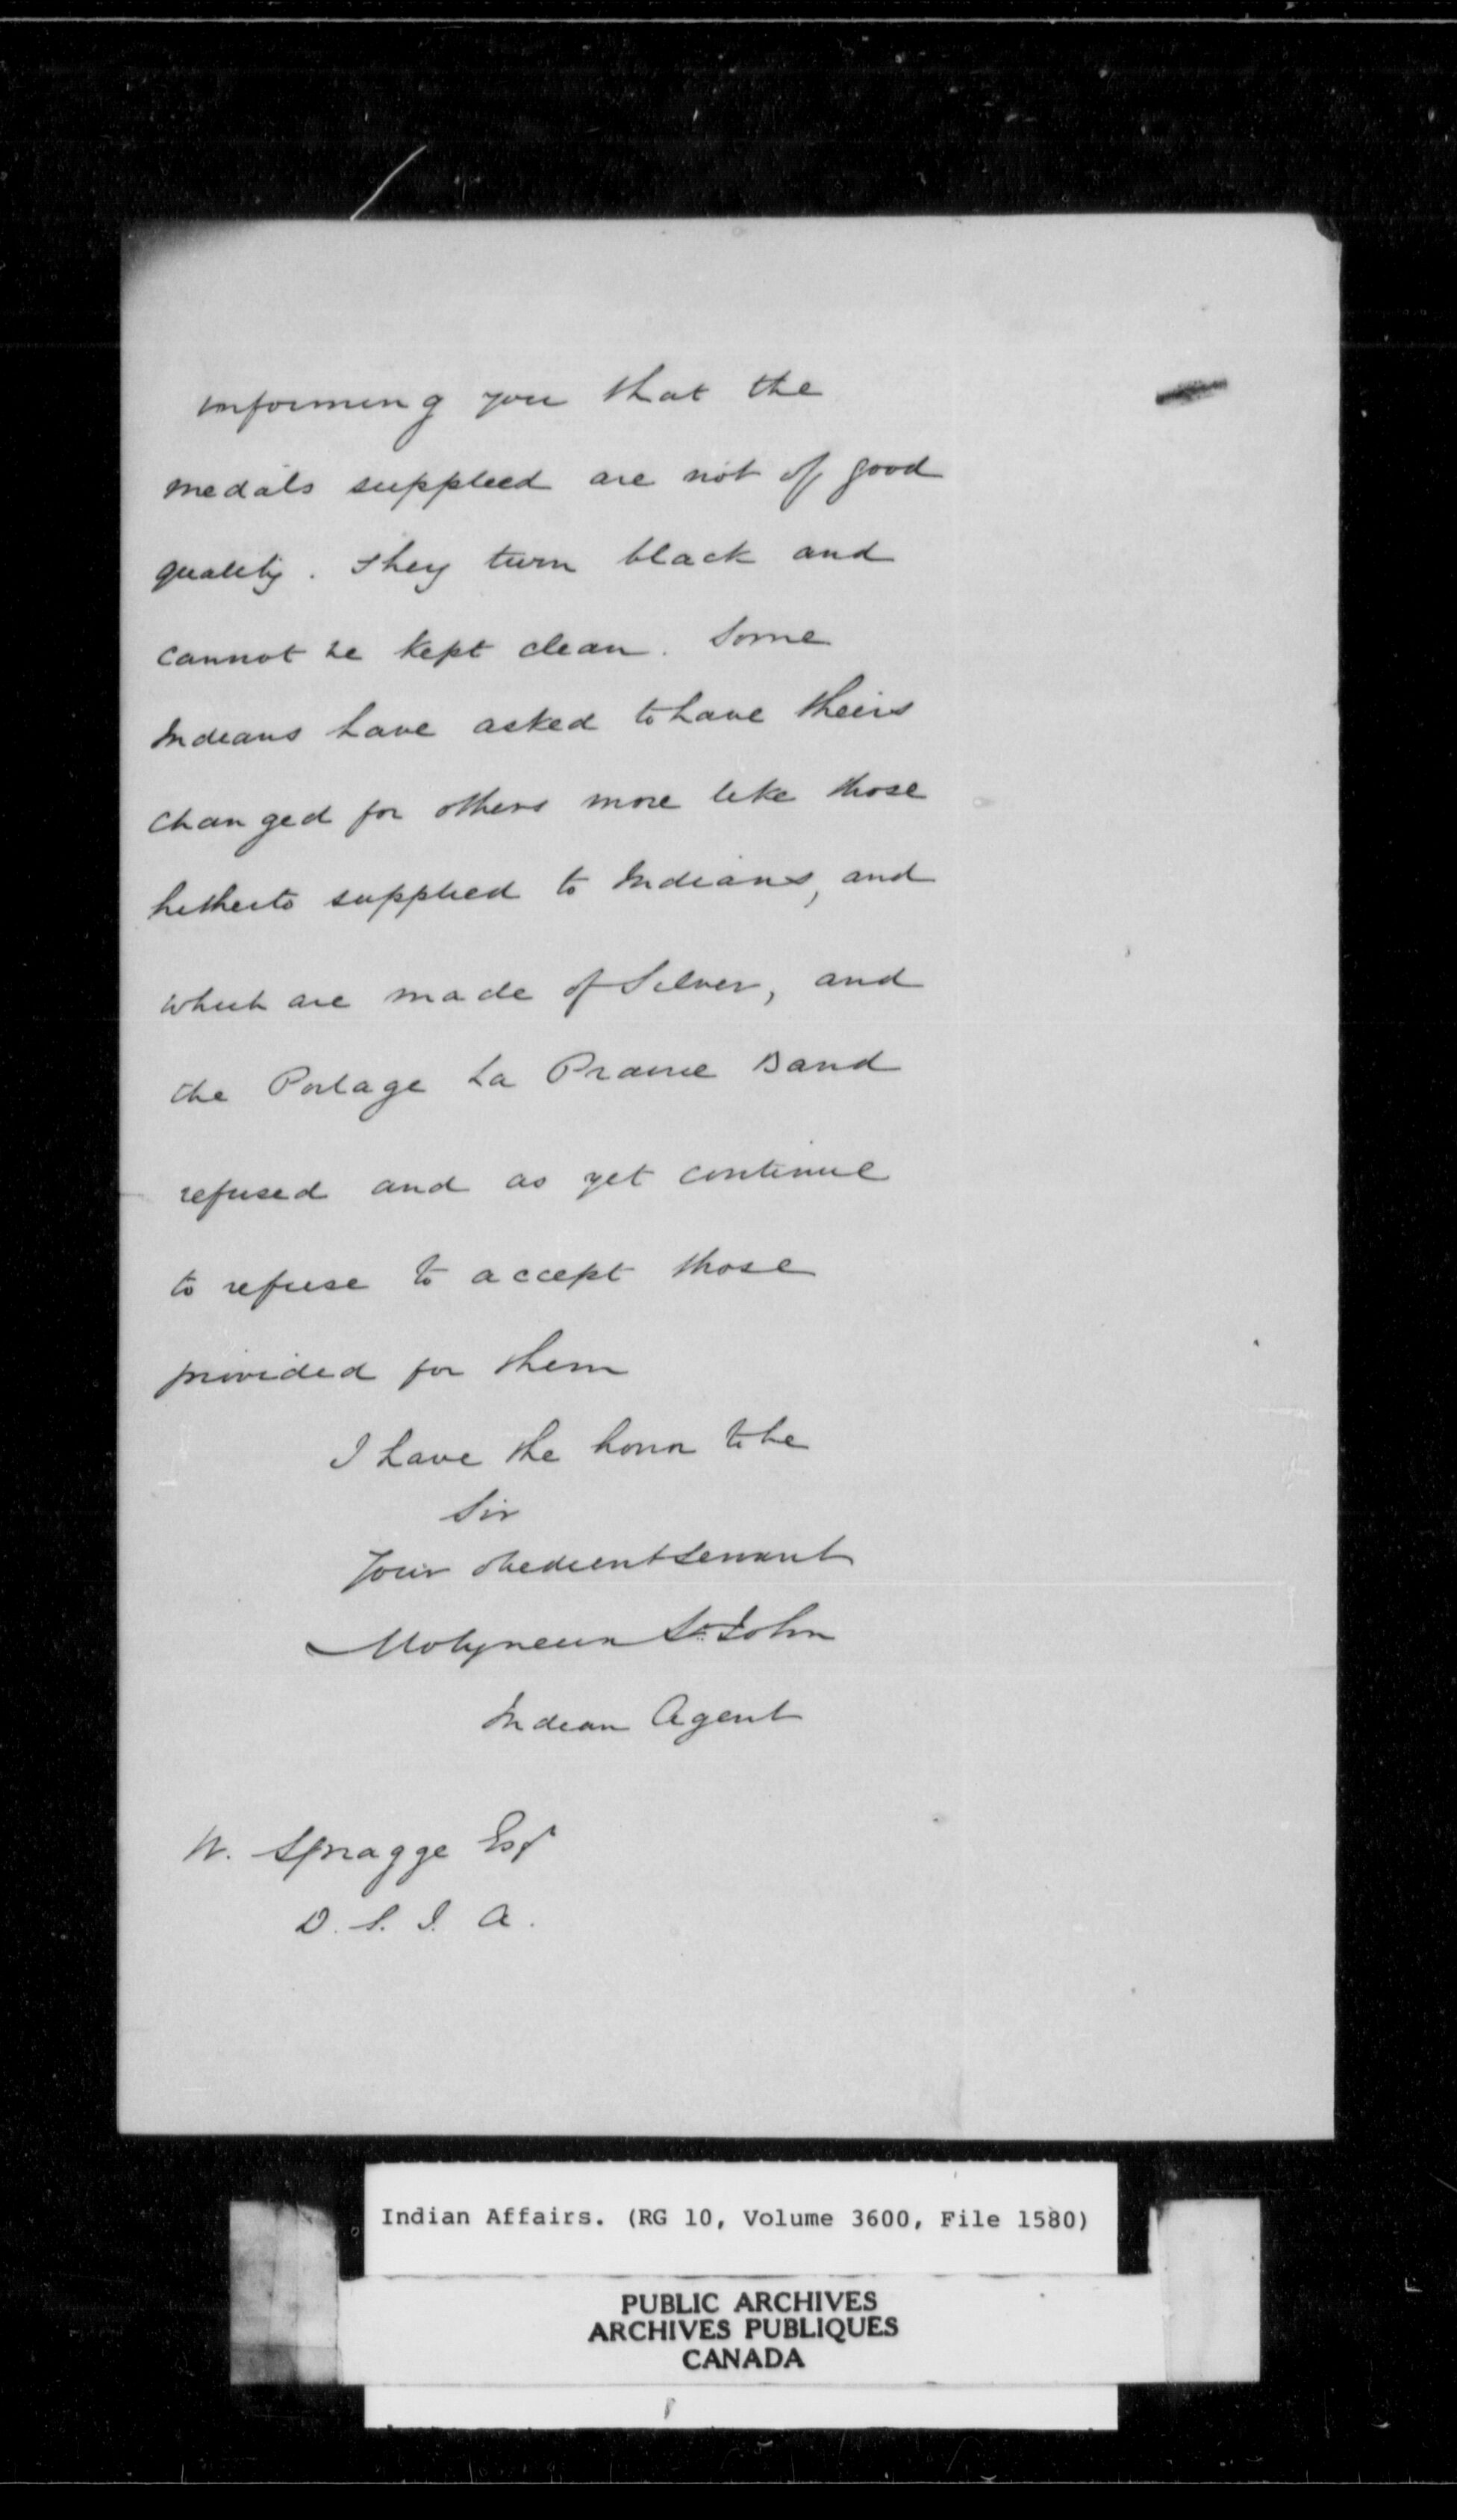 informing you that the
medals supplied are not of good
quality. They turn black and
cannot be kept clean. Some
Indians have asked to have theirs
changed for others more like those
hitherto supplied to Indians, and
which are made of Silver, and
the Portage La Prairie Band
refused and as yet continue
to refuse to accept those
provided for them
I have the honor to be
Sir
Your obedient servant
Molyneux St. John
Indian Agent
W. Spragge Esqr
D. S. I. A.
Indian Affairs. (RG 10, Volume 3600, File 1580)
PUBLIC ARCHIVES
ARCHIVES PUBLIQUES
CANADA